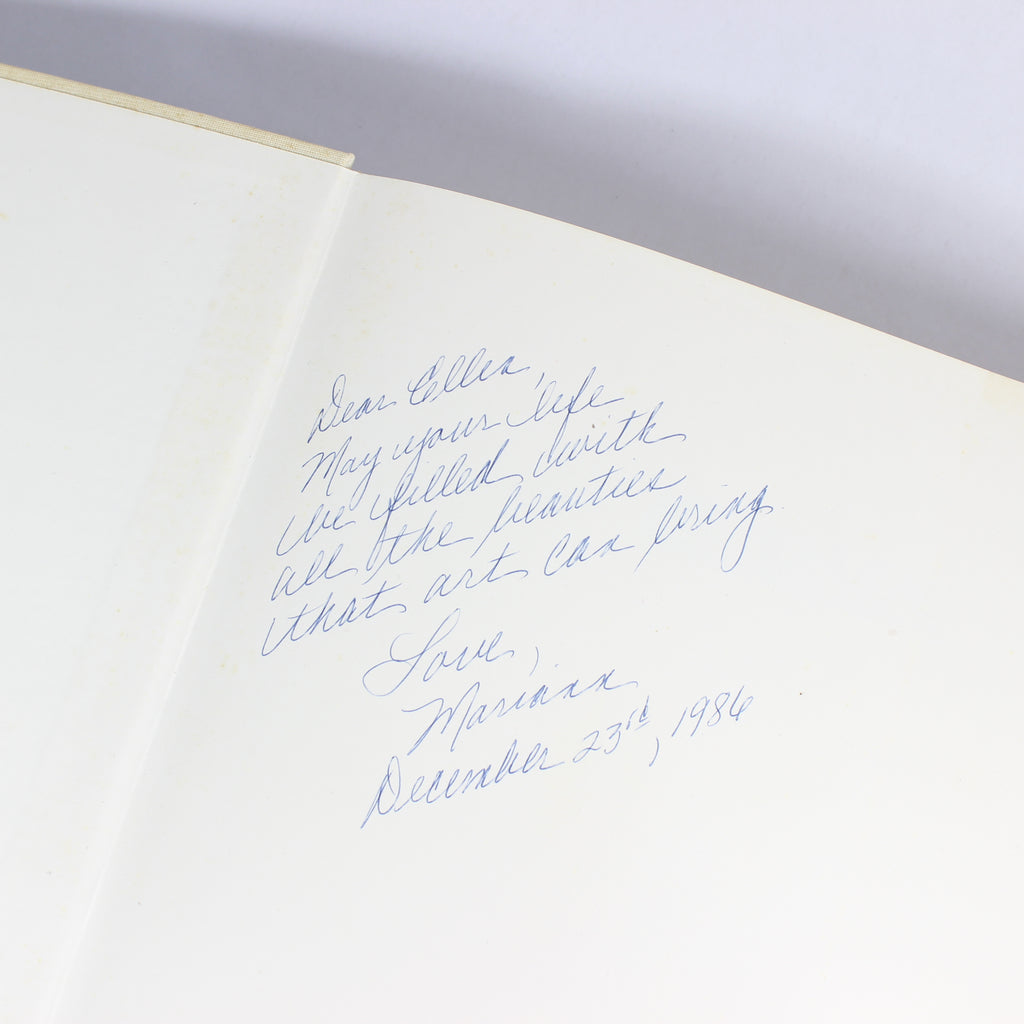 Dear Ellen,
May your life
be filled with
all the beauties
that art can bring
Love,
Mariann
December 23rd, 1986